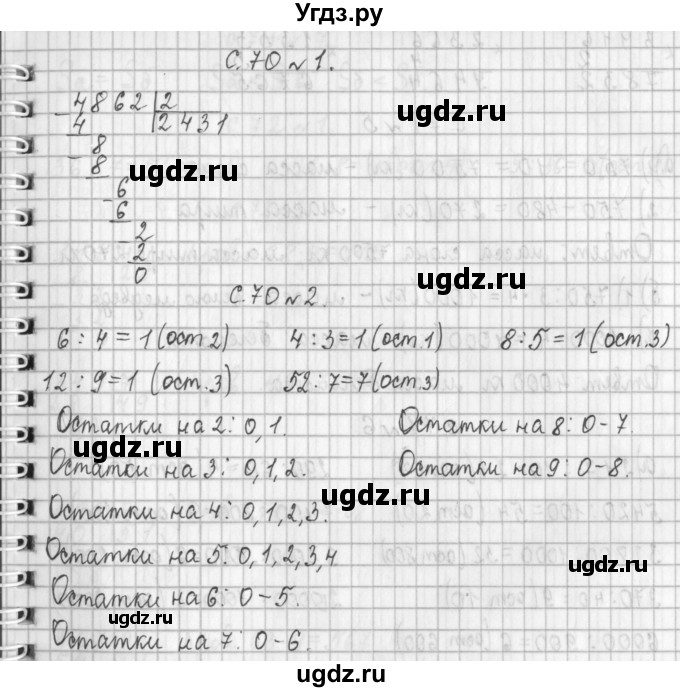 Угдз.ру
С.70 №1.
4862 | 2
4 | 2431
8
8
6
6
2
2
0
С.70 №2.
6 : 4 = 1 (ост.2) 4 : 3 = 1 (ост.1) 8 : 5 = 1 (ост.3)
12 : 9 = 1 (ост.3) 52 : 7 = 7 (ост.3)
Остатки на 2: 0, 1. Остатки на 8: 0-7.
Остатки на 3: 0, 1, 2. Остатки на 9: 0-8.
Остатки на 4: 0, 1, 2, 3.
Остатки на 5: 0, 1, 2, 3, 4
Остатки на 6: 0-5.
Остатки на 7: 0-6.
ugdz.ru
ugdz.ru
ugdz.ru
ugdz.ru
ugdz.ru
ugdz.ru
ugdz.ru
ugdz.ru
ugdz.ru